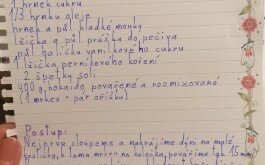 1 hrnek cukru
1/3 hrnku oleje
hrnek a půl hladké mouky
lžička a půl prášku do pečiva
půl balíčku vanilkového cukru
lžička perníkového koření
2 špetky soli
400 g hokaido povařené a rozmixované
(1 mrkev + půl oříšku)
Postup:
Nejprve oloupeme a nakrájíme dýni na malé
kostičky, k tomu mrkev na kolečka, povaříme tak 15 min